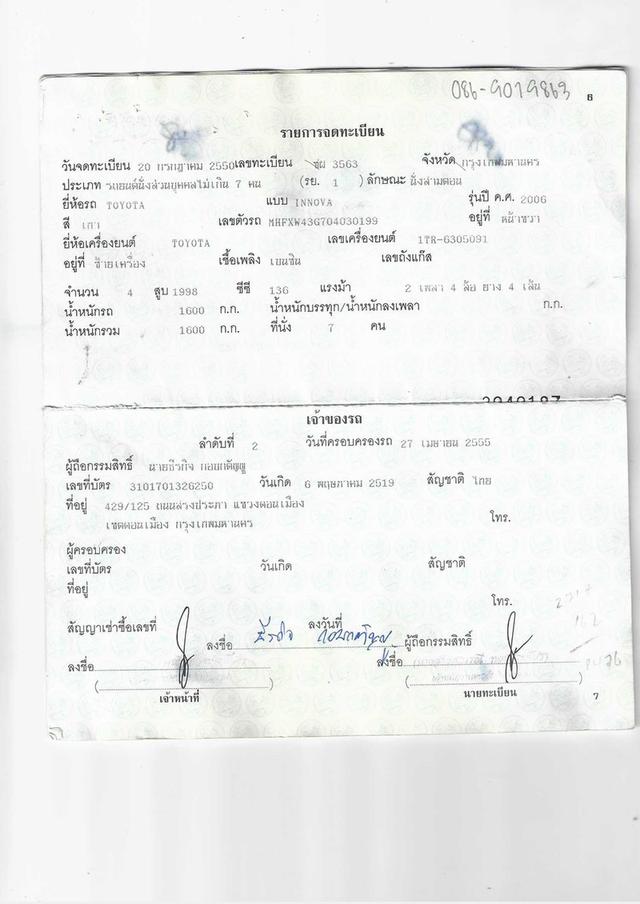 086-9019863
6
รายการจดทะเบียน
วันจดทะเบียน 20 กรกฎาคม 2550 เลขทะเบียน 3563 จังหวัด กรุงเทพมหานคร
ประเภท รถยนต์นั่งส่วนบุคคลไม่เกิน 7 คน (รย. 1 ) ลักษณะ นั่งสามตอน
ยี่ห้อรถ TOYOTA แบบ INNOVA รุ่นปี ค.ศ. 2006
สี เทา เลขตัวรถ MHFXW43G704030199 อยู่ที่ หน้าขวา
ยี่ห้อเครื่องยนต์ TOYOTA เลขเครื่องยนต์ 1TR-6305091
อยู่ที่ ซ้ายเครื่อง เชื้อเพลิง เบนซิน เลขถังแก๊ส
จำนวน 4 สูบ 1998 ซีซี 136 แรงม้า 2 เพลา 4 ล้อ ยาง 4 เส้น
น้ำหนักรถ 1600 ก.ก. น้ำหนักบรรทุก/น้ำหนักลงเพลา ก.ก.
น้ำหนักรวม 1600 ก.ก. ที่นั่ง 7 คน
เจ้าของรถ
ลำดับที่ 2 วันที่ครอบครองรถ 27 เมษายน 2555
ผู้ถือกรรมสิทธิ์ นายธีรกิจ กอบกตัญญู
เลขที่บัตร 3101701326250 วันเกิด 6 พฤษภาคม 2519 สัญชาติ ไทย
ที่อยู่ 429/125 ถนนสรงประภา แขวงดอนเมือง
เขตดอนเมือง กรุงเทพมหานคร โทร.
ผู้ครอบครอง
เลขที่บัตร วันเกิด สัญชาติ
ที่อยู่
โทร.
สัญญาเช่าซื้อเลขที่ ลงวันที่
ลงชื่อ ธีรกิจ กอบกตัญญู ผู้ถือกรรมสิทธิ์
ลงชื่อ ลงชื่อ
( ) ( )
เจ้าหน้าที่ นายทะเบียน
7